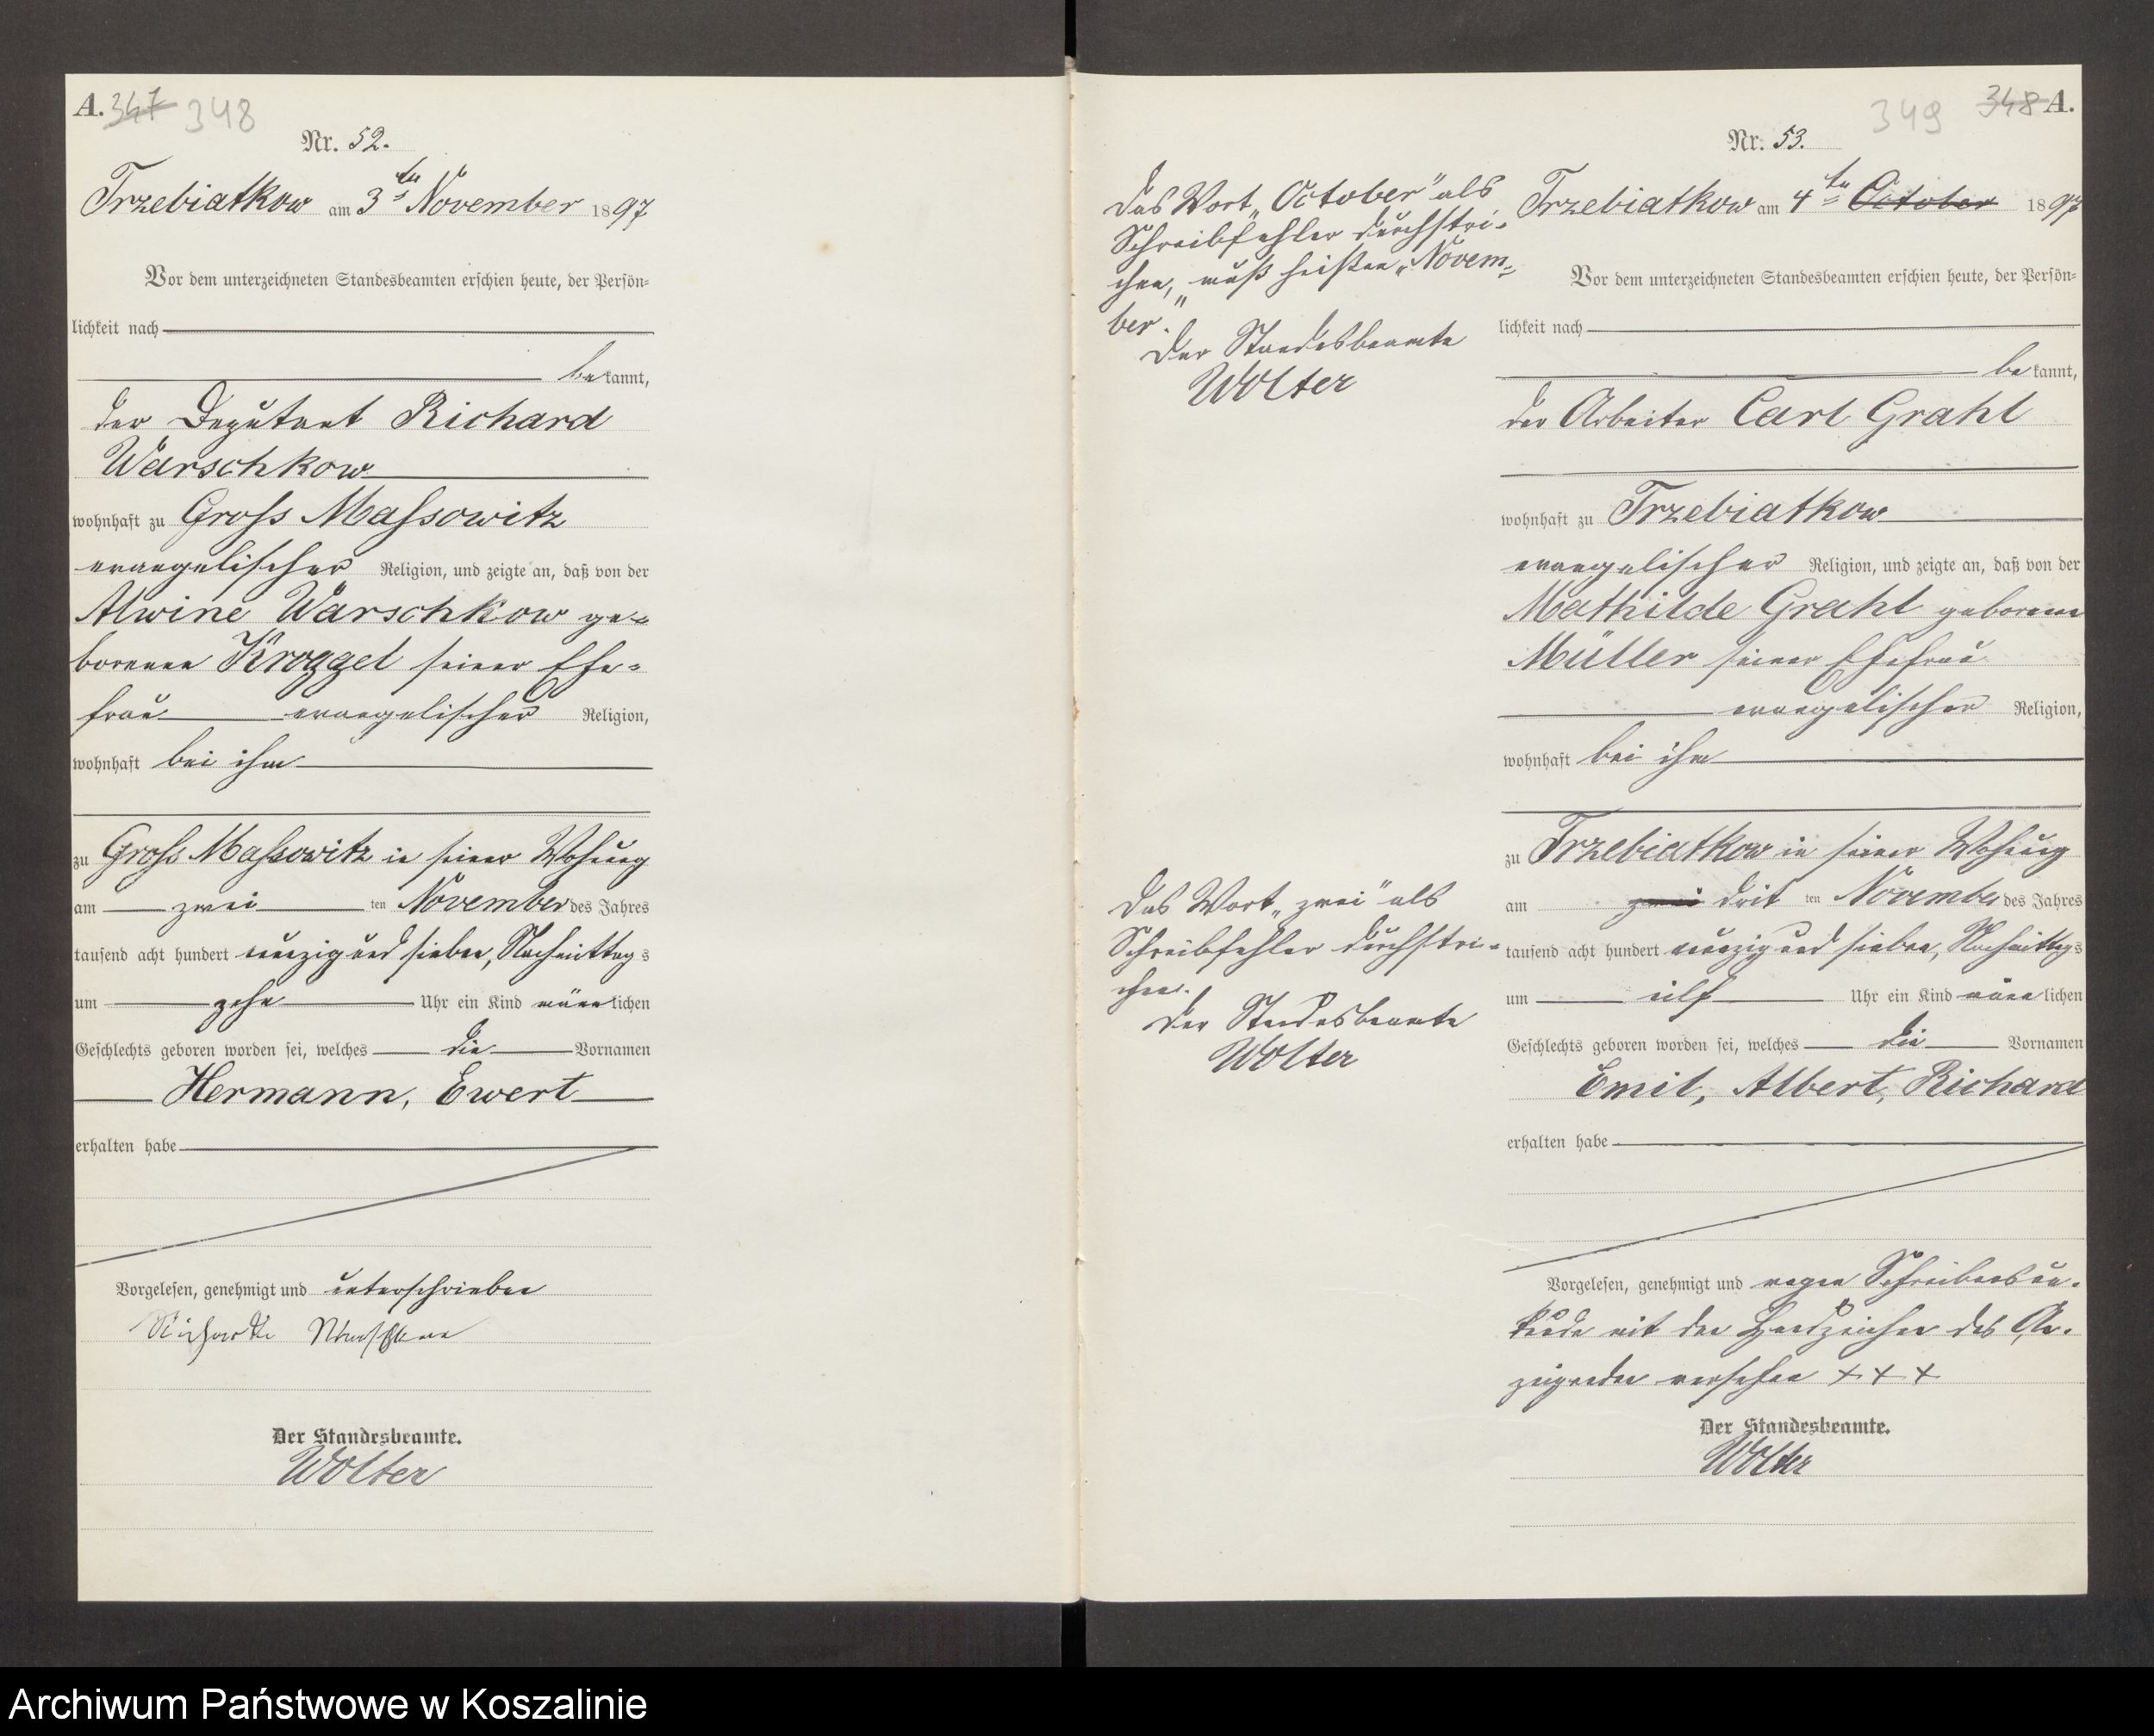 A. 347 348
Nr. 52.
Trzebiatkow am 3ten November 1897
Vor dem unterzeichneten Standesbeamten erschien heute, der Persön=
lichkeit nach
bekannt,
der Deputant Richard
Warschkow
wohnhaft zu Gross Massowitz
evangelischer Religion, und zeigte an, daß von der
Alwine Warschkow ge=
borenen Kroggel seiner Ehe=
frau evangelischer Religion,
wohnhaft bei ihm
zu Gross Massowitz in seiner Wohnung
am zwei ten November des Jahres
tausend acht hundert neunzig und sieben, Nachmittags
um zehn Uhr ein Kind männlichen
Geschlechts geboren worden sei, welches die Vornamen
Hermann, Ewert
erhalten habe
Vorgelesen, genehmigt und unterschrieben
Richard Warschkow
Der Standesbeamte.
Wolter
349 348 A.
Nr. 53.
Das Wort „October" als
Schreibfehler durchstri=
chen, muß heißen „Novem=
ber."
Der Standesbeamte
Wolter
Das Wort „zwei" als
Schreibfehler durchstri=
chen.
Der Standesbeamte
Wolter
Trzebiatkow am 4ten October 1897
Vor dem unterzeichneten Standesbeamten erschien heute, der Persön=
lichkeit nach
bekannt,
der Arbeiter Carl Grahl
wohnhaft zu Trzebiatkow
evangelischer Religion, und zeigte an, daß von der
Mathilde Grahl geborenen
Müller seiner Ehefrau
evangelischer Religion,
wohnhaft bei ihm
zu Trzebiatkow in seiner Wohnung
am zwei drit ten November des Jahres
tausend acht hundert neunzig und sieben, Nachmittags
um elf Uhr ein Kind männlichen
Geschlechts geboren worden sei, welches die Vornamen
Emil, Albert, Richard
erhalten habe
Vorgelesen, genehmigt und wegen Schreibensun=
kunde mit den Handzeichen des An=
zeigenden versehen + + +
Der Standesbeamte.
Wolter
Archiwum Państwowe w Koszalinie